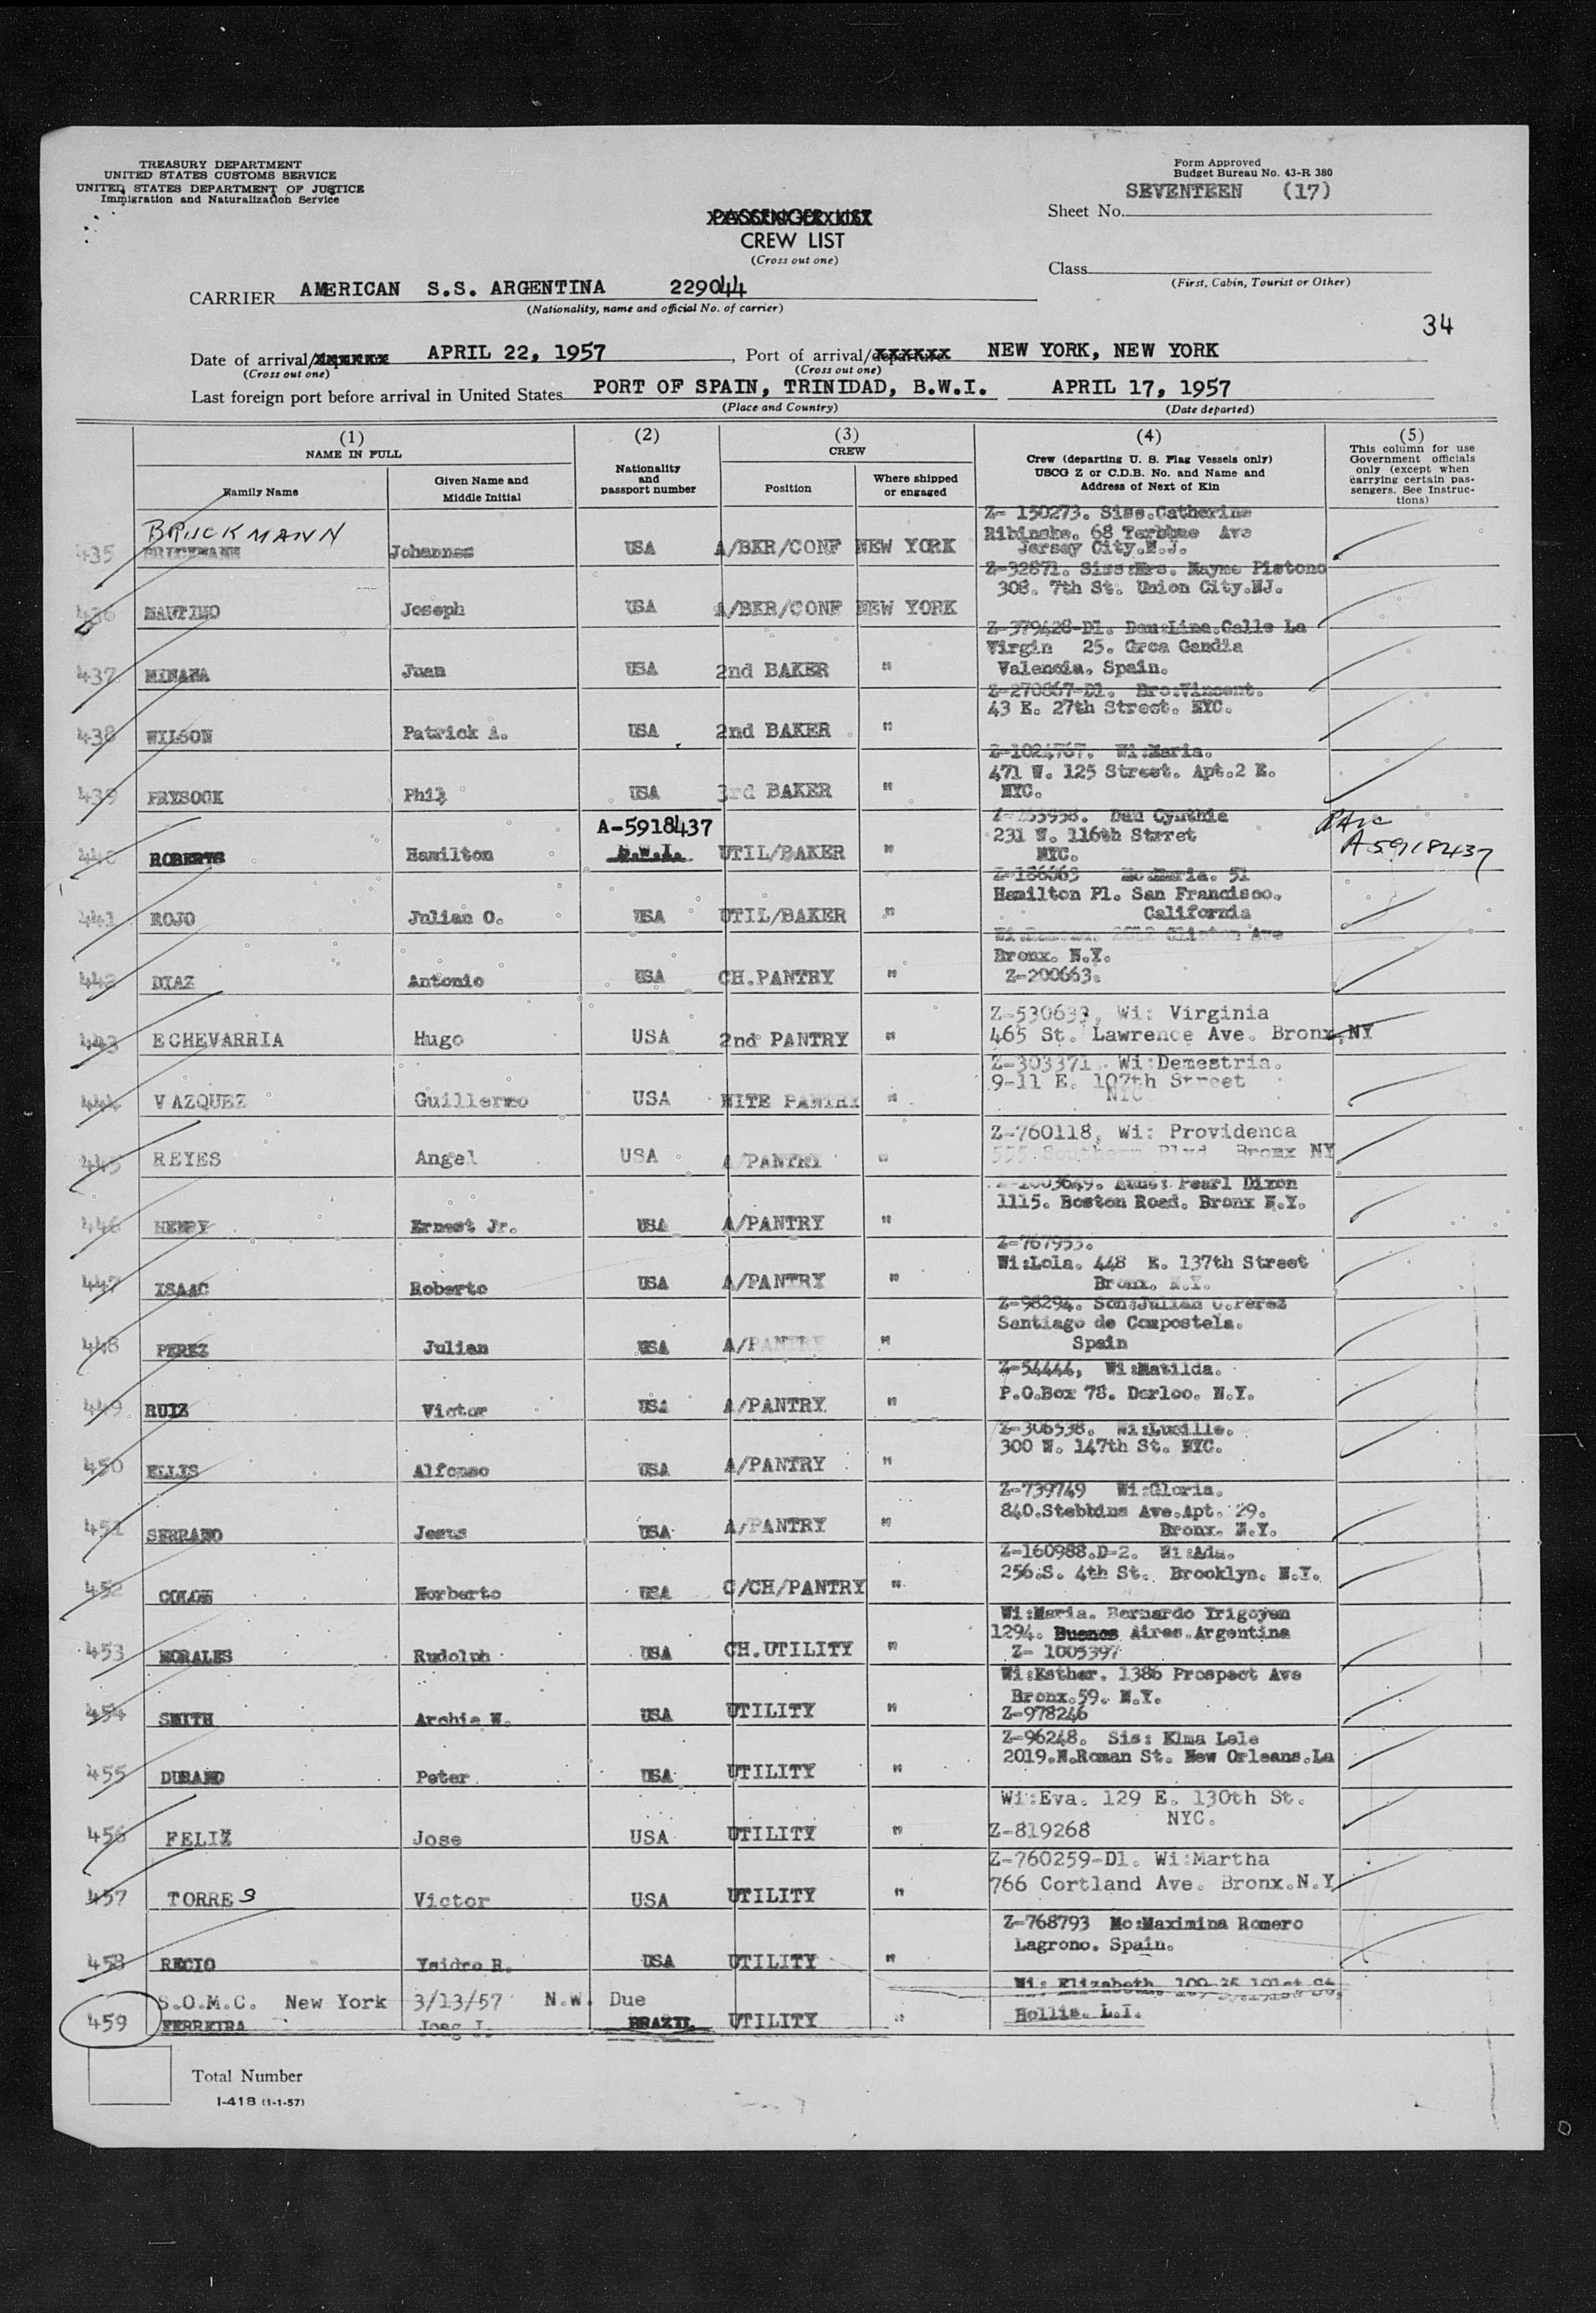 TREASURY DEPARTMENT
UNITED STATES CUSTOMS SERVICE
UNITED STATES DEPARTMENT OF JUSTICE
Immigration and Naturalization Service
Form Approved
Budget Bureau No. 43-R 380
SEVENTEEN (17)
Sheet No.
PASSENGER LIST
CREW LIST
(Cross out one)
Class
(First, Cabin, Tourist or Other)
CARRIER AMERICAN S.S. ARGENTINA 229044
(Nationality, name and official No. of carrier)
34
Date of arrival/ APRIL 22, 1957, Port of arrival/departure NEW YORK, NEW YORK
(Cross out one) (Cross out one)
Last foreign port before arrival in United States PORT OF SPAIN, TRINIDAD, B.W.I. APRIL 17, 1957
(Place and Country) (Date departed)
(1) NAME IN FULL
Family Name
Given Name and Middle Initial
(2) Nationality and passport number
(3) CREW
Position
Where shipped or engaged
(4) Crew (departing U. S. Flag Vessels only) USCG Z or C.D.B. No. and Name and Address of Next of Kin
(5) This column for use Government officials only (except when carrying certain passengers. See Instructions)
BRUCKMANN
435 Johannes USA A/BKR/CONF NEW YORK Z- 150273. Siss.Catherine
Ribinske. 68 Ave
Jersey City.N.J.
436 MAUTINO Joseph USA A/BKR/CONF NEW YORK Z-32871. Siss:Mrs. Mayme Pistono
308. 7th St. Union City.NJ.
437 MINANA Juan USA 2nd BAKER " Z-379428-D1. Dau:Lina.Calle La
Virgin 25. Grca Gandia
Valencia. Spain.
438 WILSON Patrick A. USA 2nd BAKER " Z-270867-D1. Bro:Vincent.
43 E. 27th Street. NYC.
439 FRYSOCK Phil USA 3rd BAKER " Z-1024767. Wi:Maria.
471 W. 125 Street. Apt.2 E.
NYC.
A-5918437
440 ROBERTS Hamilton B.W.I. UTIL/BAKER " Dau Cynthia
231 W. 116th Strret
NYC.
A5918437
441 ROJO Julian O. USA UTIL/BAKER " Z-186663 Mo:Maria. 51
Hamilton Pl. San Francisco.
California
442 DIAZ Antonio USA CH.PANTRY " Clinton Ave
Bronx. N.Y.
Z-200663.
443 ECHEVARRIA Hugo USA 2nd PANTRY " Z-530633, Wi: Virginia
465 St. Lawrence Ave. Bronx,NY
444 VAZQUEZ Guillermo USA NITE PANTRY " Z-303371. Wi:Demestria.
9-11 E. 107th Street
NYC
445 REYES Angel USA A/PANTRY " Z-760118, Wi: Providenca
555 Southern Blvd Bronx NY
446 HENRY Ernest Jr. USA A/PANTRY " Z-1003649. Aunt: Pearl Dixon
1115. Boston Road. Bronx N.Y.
447 ISAAC Roberto USA A/PANTRY " Z-767953.
Wi:Lola. 448 E. 137th Street
Bronx. N.Y.
448 PEREZ Julian USA A/PANTRY " Z-98294. Son:Julian C.Perez
Santiago de Compostela.
Spain
449 RUIZ Victor USA A/PANTRY " Z-54444, Wi:Matilda.
P.O.Box 78. Darloo. N.Y.
450 ELLIS Alfonso USA A/PANTRY " Z-306538. Wi:Lucille.
300 W. 147th St. NYC.
451 SERRANO Jesus USA A/PANTRY " Z-739749 Wi:Gloria.
840.Stebbins Ave.Apt. 29.
Bronx. N.Y.
452 COLON Norberto USA C/CH/PANTRY " Z-160988.D-2. Wi:Ada.
256.S. 4th St. Brooklyn. N.Y.
453 MORALES Rudolph USA CH.UTILITY " Wi:Maria. Bernardo Yrigoyen
1294. Buenos Aires.Argentina
Z- 1005397
454 SMITH Archie W. USA UTILITY " Wi:Esther. 1386 Prospect Ave
Bronx.59. N.Y.
Z-978246
455 DURAND Peter USA UTILITY " Z-96248. Sis: Elma Lele
2019.N.Roman St. New Orleans.La
456 FELIZ Jose USA UTILITY " Wi:Eva. 129 E. 130th St.
NYC.
Z-819268
457 TORRES Victor USA UTILITY " Z-760259-D1. Wi:Martha
766 Cortland Ave. Bronx.N.Y
458 RECIO Ysidro R. USA UTILITY " Z-768793 Mo:Maximina Romero
Lagrono. Spain.
S.O.M.C. New York 3/13/57 N.W. Due
459 FERREIRA Joag J. BRAZIL UTILITY " Wi: Elizabeth.
Hollis. L.I.
Total Number
I-418 (1-1-57)